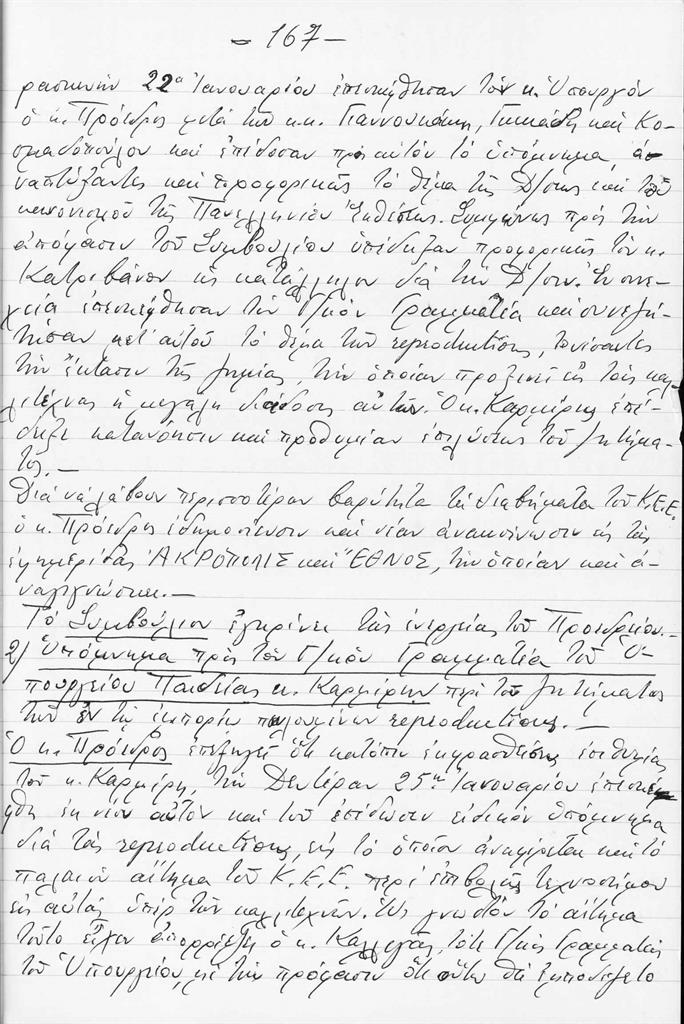 — 167 —
ρασκευήν 22αν Ἰανουαρίου ἐπεσκέφθησαν τὸν κ. Ὑπουργὸν
ὁ κ. Πρόεδρος μετὰ τῶν κ.κ. Γιαννουκάκη, καὶ Κο-
σμαδοπούλου καὶ ἐπέδοσαν πρὸς αὐτὸν τὸ ὑπόμνημα, ἀ-
ναπτύξαντες καὶ προφορικῶς τὸ θέμα τῆς Δ/σεως καὶ τοῦ
κανονισμοῦ τῆς Πανελληνίου Ἐκθέσεως. Συμφώνως πρὸς τὴν
ἀπόφασιν τοῦ Συμβουλίου ὑπέδειξαν προφορικῶς τὸν κ.
Κατριβάνον ὡς κατάλληλον διὰ τὴν Δ/σιν. Ἐν συνε-
χείᾳ ἐπεσκέφθησαν τὸν Γ/κὸν Γραμματέα καὶ συνεζή-
τησαν μετ' αὐτοῦ τὸ θέμα τῶν reproductions, τονίσαντες
τὴν ἔκτασιν τῆς ζημίας, τὴν ὁποίαν προξενεῖ εἰς τοὺς καλ-
λιτέχνας ἡ μεγάλη διάδοσις αὐτῶν. Ὁ κ. Καρμίρης ἐπέ-
δειξε κατανόησιν καὶ προθυμίαν ἐπιλύσεως τοῦ ζητήμα-
τος. —
Διὰ νὰ λάβουν περισσοτέραν βαρύτητα τὰ διαβήματα τοῦ Κ.Ε.Ε.
ὁ κ. Πρόεδρος ἐδημοσίευσεν καὶ νέαν ἀνακοίνωσιν εἰς τὰς
ἐφημερίδας ἈΚΡΟΠΟΛΙΣ καὶ ἜΘΝΟΣ, τὴν ὁποίαν καὶ ἀ-
ναγιγνώσκει. —
Τὸ Συμβούλιον ἐγκρίνει τὰς ἐνεργείας τοῦ Προεδρείου. —
2) Ὑπόμνημα πρὸς τὸν Γ/κὸν Γραμματέα τοῦ Ὑ-
πουργείου Παιδείας κ. Καρμίρην περὶ τοῦ ζητήματος
τῶν ἐν τῷ ἐμπορίῳ πωλουμένων reproductions. —
Ὁ κ. Πρόεδρος ἐπεξηγεῖ ὅτι κατόπιν ἐκφρασθείσης ἐπιθυμίας
τοῦ κ. Καρμίρη, τὴν Δευτέραν 25ην Ἰανουαρίου ἐπεσκέ-
φθη ἐκ νέου αὐτὸν καὶ τοῦ ἐπέδωσεν εἰδικὸν ὑπόμνημα
διὰ τὰς reproductions, εἰς τὸ ὁποῖον ἀναφέρεται καὶ τὸ
παλαιὸν αἴτημα τοῦ Κ.Ε.Ε. περὶ ἐπιβολῆς τεχνοσήμου
εἰς αὐτάς, ὑπὲρ τῶν καλλιτεχνῶν. Ὡς γνωστὸν τὸ αἴτημα
τοῦτο εἶχεν ἀπορρίψει ὁ κ. Καλλιγᾶς, τότε Γ/κὸς Γραμματεὺς
τοῦ Ὑπουργείου, μὲ τὴν πρόφασιν ὅτι οὕτω θὰ ἐμποδίζετο